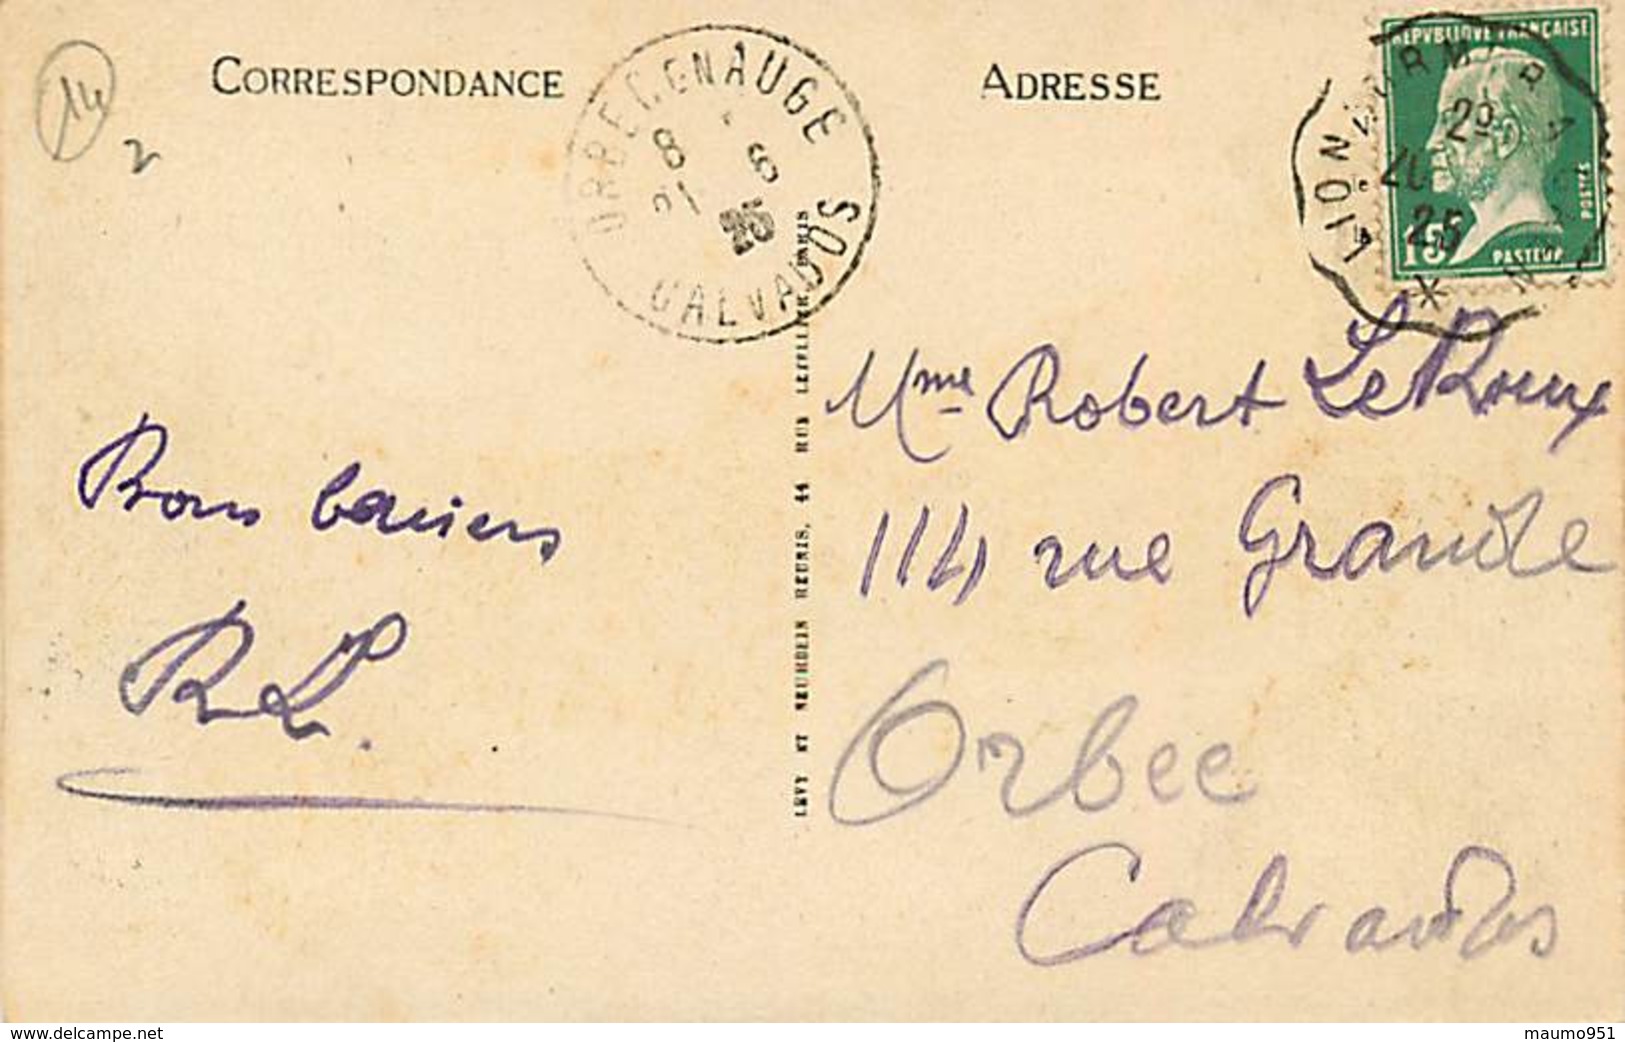 CORRESPONDANCE
ADRESSE
14
2
ORBEC-EN-AUGE
8
21 6
25
CALVADOS
REPVBLIQVE FRANÇAISE
POSTES
15
PASTEUR
20
25
LION
Mme Robert LeRoux
114 rue Grande
Orbec
Calvados
Bons baisers
RL.
LÉVY ET NEURDEIN RÉUNIS, 44 RUE LETELLIER, PARIS
www.delcampe.net
maumo951